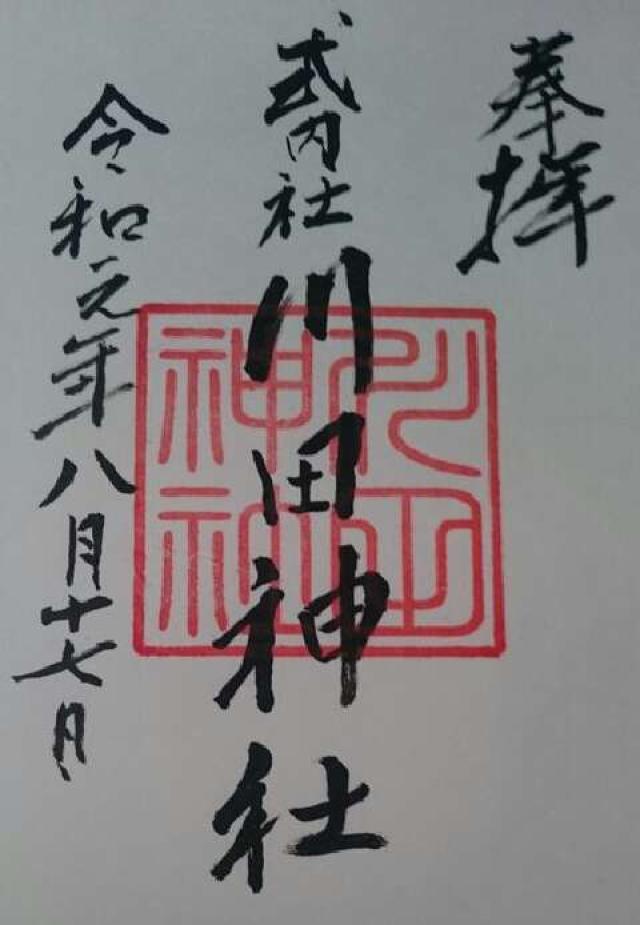 奉拝
式内社 川田神社
令和元年八月十七日
川田神社